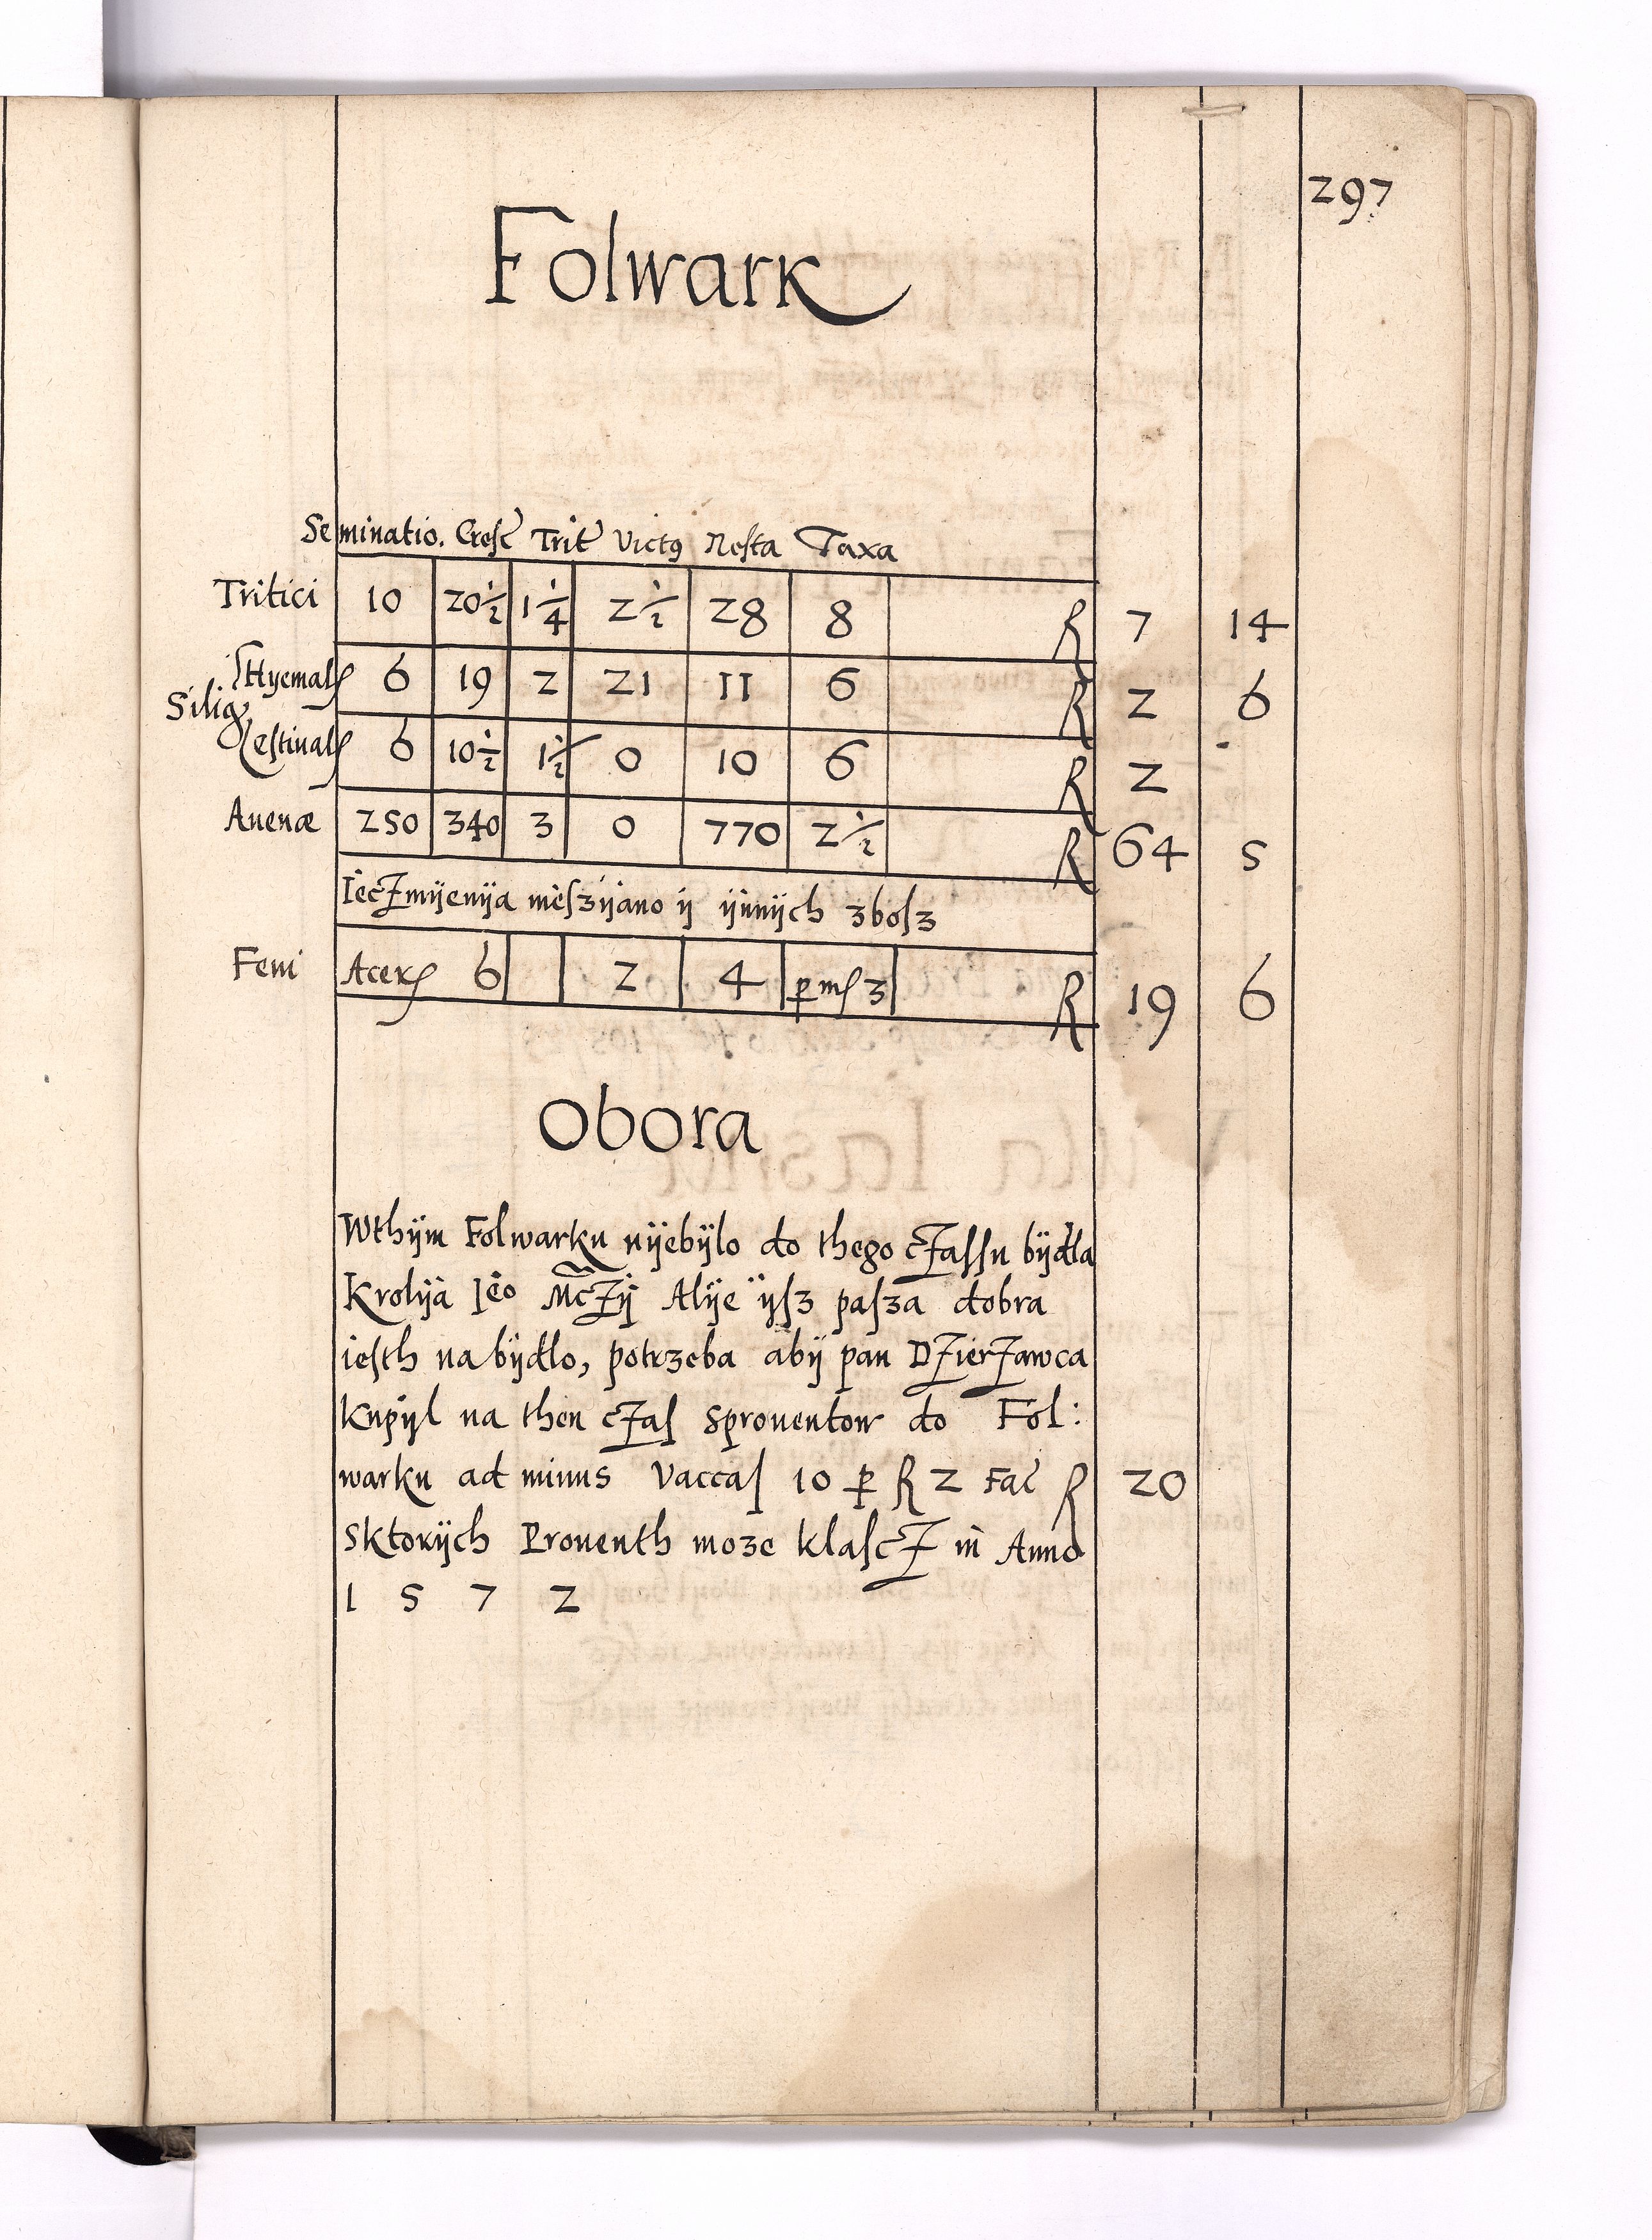 297
Folwark
Seminatio. Cresc̃ Trit̃ Victꝯ Resta Taxa
Tritici 10 20½ 1¼ 2½ 28 8 ꝶ 7 14
Silig. Hyemalꝭ 6 19 2 21 11 6 ꝶ 2 6
Aestiualꝭ 6 10½ 1½ 0 10 6 ꝶ 2
Auenæ 250 340 3 0 770 2½ ꝶ 64 5
Ieczmÿenÿa nieſzÿano ÿ ÿnnÿch zboſz
Feni Acerꝭ 6 2 4 ꝑ mꝭ 3 ꝶ 19 6
Obora
Wthÿm Folwarku nÿebÿlo do thego czaſſu bÿdla
Krolÿa Ieo Mczÿ Alÿe ÿſz paſza dobra
ieſth na bÿdlo, potrzeba abÿ pan Dzierzawca
kupÿl na then czaſ sprouentow do Fol:
warku ad minus Vaccaſ 10 ꝑ ꝶ 2 Fac̃ ꝶ 20
Sktorÿch Prouenth moze klaſcz in Anno
1 5 7 2